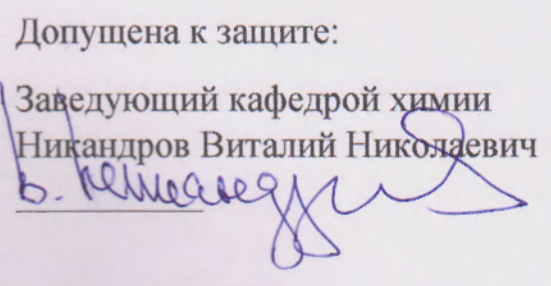 Допущена к защите:
Заведующий кафедрой химии
Никандров Виталий Николаевич